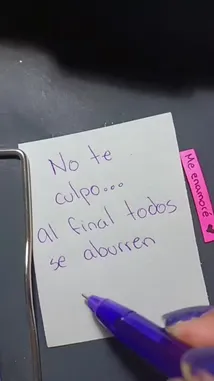 No te
culpo...
al final todos
se aburren
Me enamoré